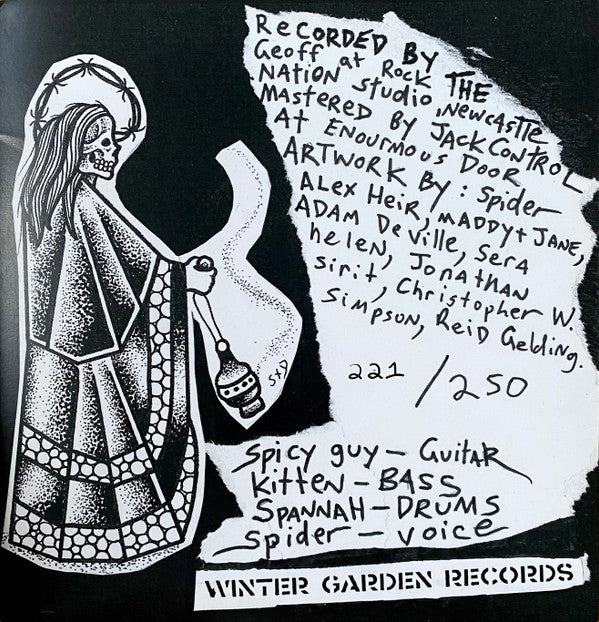 ReCORDED BY THE
Geoff at Rock
NATION STUDIO, NEWCASTLE
MASTERED BY JACK CONTROL
AT ENOURMOUS DOOR
ARTWORK BY: Spider
ALEX HEIR, MADDY + JANE,
ADAM DeVILLE, SERA
helen, JONATHAN
sirit, Christopher W.
Simpson, ReiD Gelding.
221 / 250
SXD
Spicy guy - GuitAR
KitteN - BASS
SPANNAH - DRUMS
Spider - voice
WINTER GARDEN RECORDS